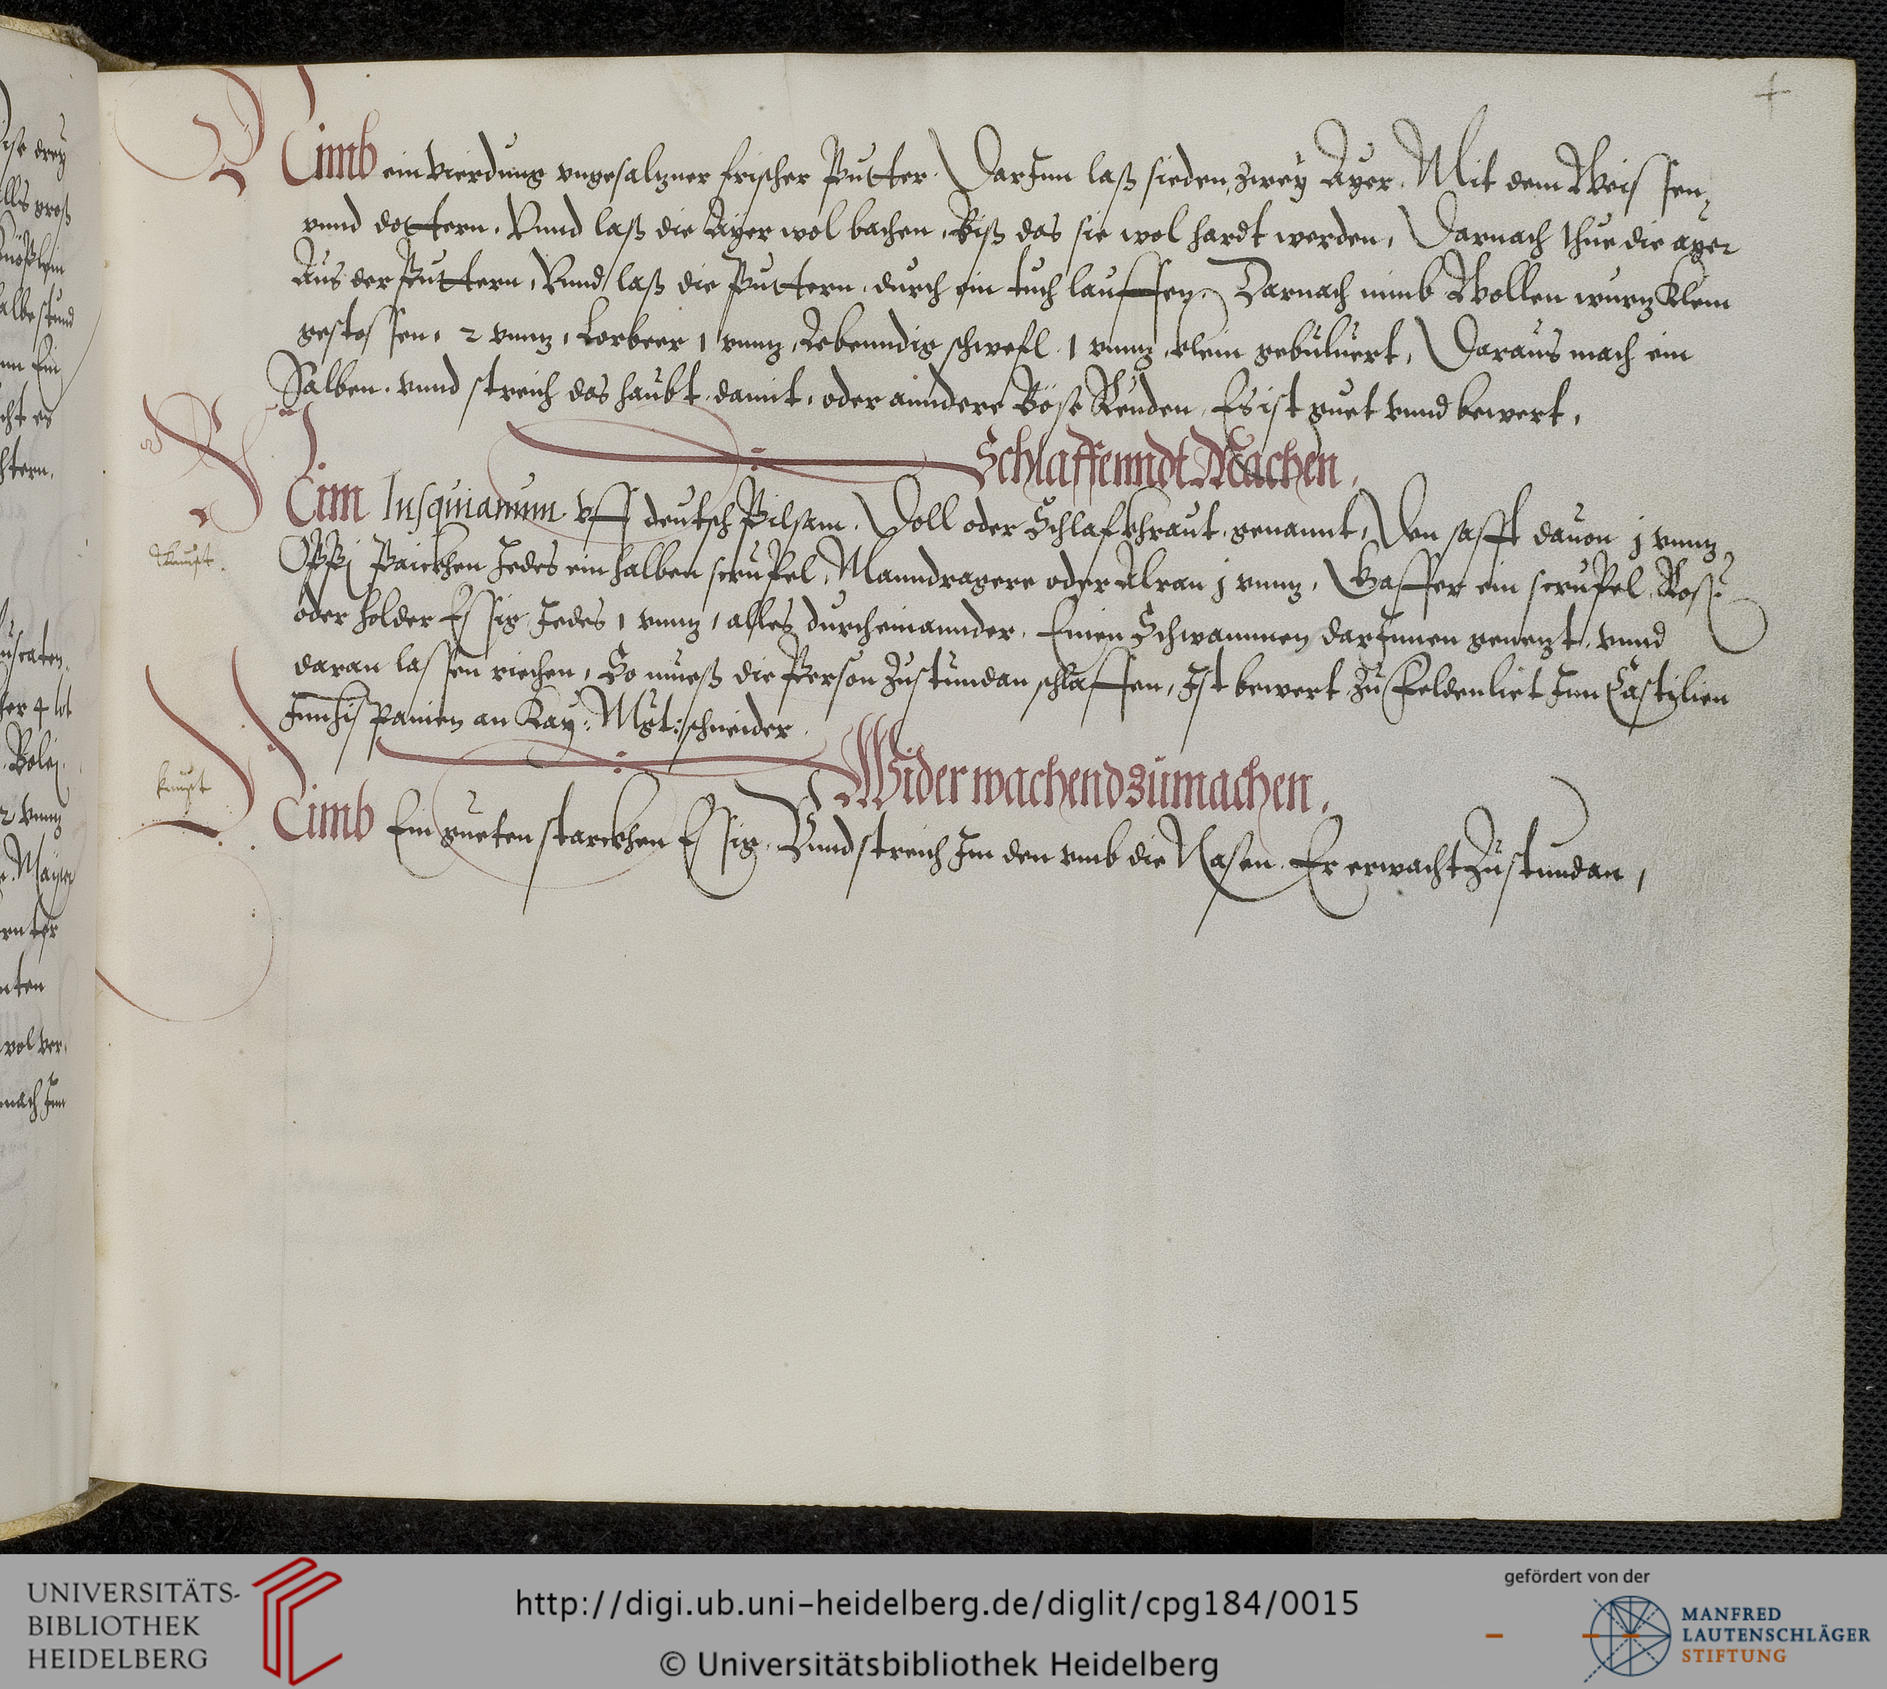 Nimb ein vierdung vngesalzner frischer Putter. Darjnn laß sieden, zwey Ayer. Mit dem Weissen,
vnnd dottern. Vnnd laß die Ayer wol bachen, Biß das sie wol hardt werden, Darnach thue die ayer
Aus der Puttern, Vnnd laß die Puttern, durch ein tuch lauffen, Darnach nimb Wollen wurz Klein
gestossen, 2 vnnz, Lorbeer 1 vnnz, Lebenndig schwefl 1 vnnz, klein gebuluert, Daraus mach ein
Salben. vnnd streich das haubt damit, oder anndere Böse Reuden, Es ist guet vnnd bewert,
Schlaffenndt Machen,
Nim Jusquianum vff deutsch Pilsam. Doll oder Schlafkhraut, genannt, Den safft dauon j vnnz,
Oppij Paickhen Jedes ein halben scrupel, Manndragore oder Alran j vnnz, Gaffer ein scrupel, Roß
oder holder Essig Jedes 1 vnnz, alles durcheinannder, Einen Schwammen darJnnen genezt, vnnd
daran lassen riechen, So mueß die Person zustundan schlaffen, Jst bewert zu Feldenliet Jnn Castilien
Jnn hispanien an Kay: Mgt: schneider.
Wider wachend zumachen,
Nimb Ein gueten starckhen Essig, Vnnd streich Jm den vmb die Nasen. Er erwacht zustundan,
UNIVERSITÄTS-
BIBLIOTHEK
HEIDELBERG
http://digi.ub.uni-heidelberg.de/diglit/cpg184/0015
© Universitätsbibliothek Heidelberg
gefördert von der
MANFRED
LAUTENSCHLÄGER
STIFTUNG